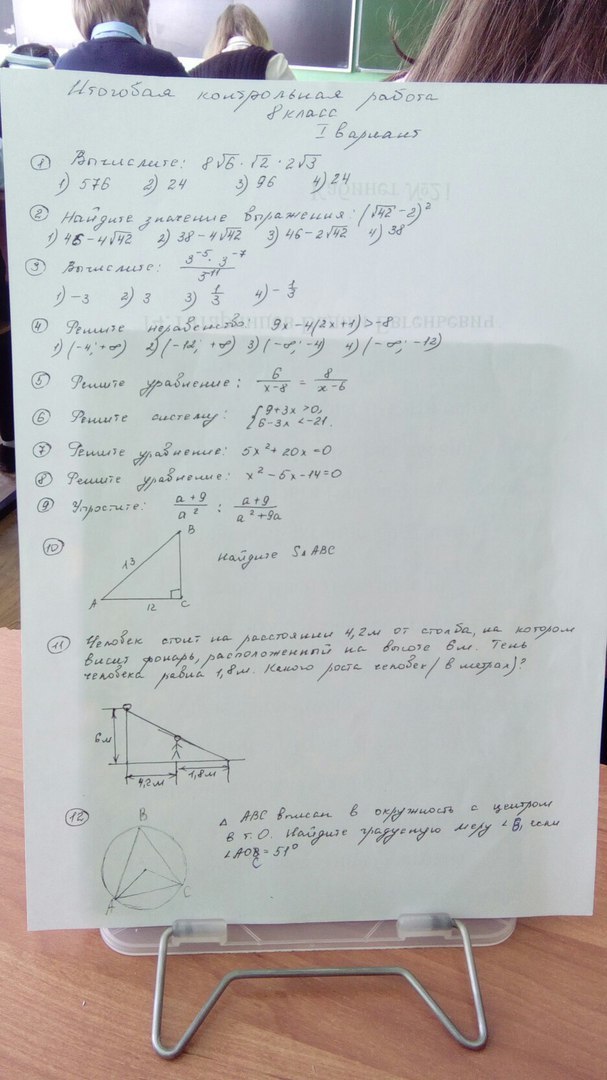 Итоговая контрольная работа
8 класс
I вариант
① Вычислите: 8√6 · √2 · 2√3
1) 576 2) 24 3) 96 4) 24
② Найдите значение выражения: (√42 - 2)²
1) 46 - 4√42 2) 38 - 4√42 3) 46 - 2√42 4) 38
③ Вычислите: (3⁻⁵ · 3⁻⁷)/3⁻¹¹
1) -3 2) 3 3) 1/3 4) -1/3
④ Решите неравенство: 9x - 4(2x+1) > -8
1) (-4; +∞) 2) (-12; +∞) 3) (-∞; -4) 4) (-∞; -12)
⑤ Решите уравнение: 6/(x-8) = 8/(x-6)
⑥ Решите систему: { 9+3x > 0,
6-3x < -21.
⑦ Решите уравнение: 5x² + 20x = 0
⑧ Решите уравнение: x² - 5x - 14 = 0
⑨ Упростите: (a+9)/a² : (a+9)/(a²+9a)
⑩ Найдите S△ABC
B
13
A 12 C
⑪ Человек стоит на расстоянии 4,2м от столба, на котором
висит фонарь, расположенный на высоте 6м. Тень
человека равна 1,8м. Какого роста человек (в метрах)?
6м
4,2м 1,8м
⑫ △ ABC вписан в окружность с центром
в т. О. Найдите градусную меру ∠B, если
∠AOC = 51°
B
A C